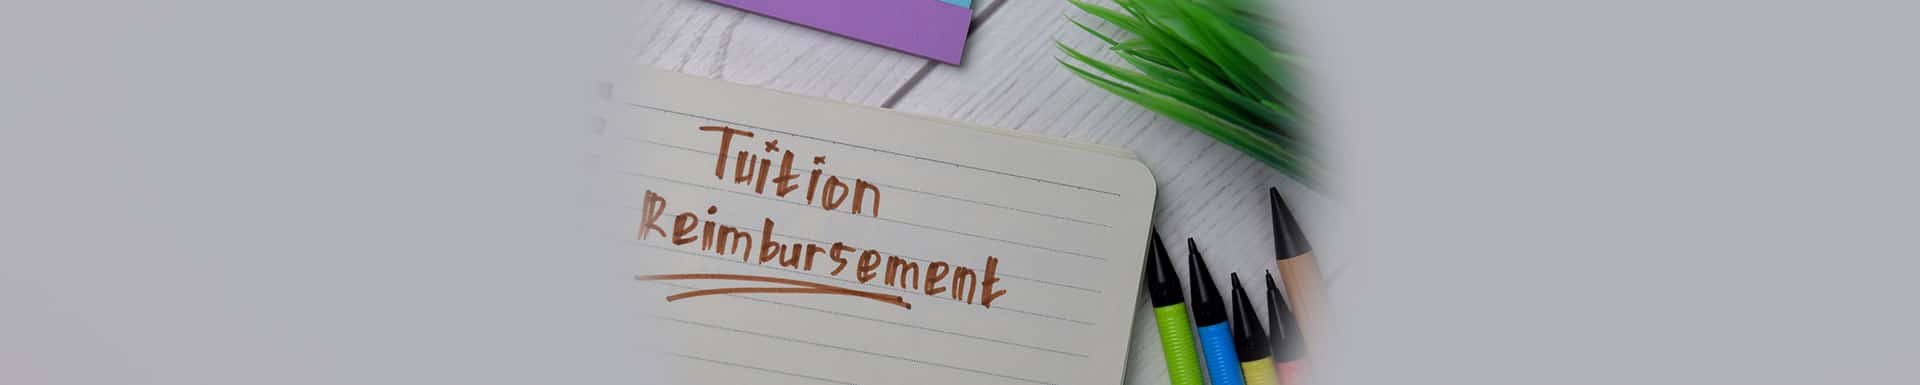 Tuition
Reimbursement